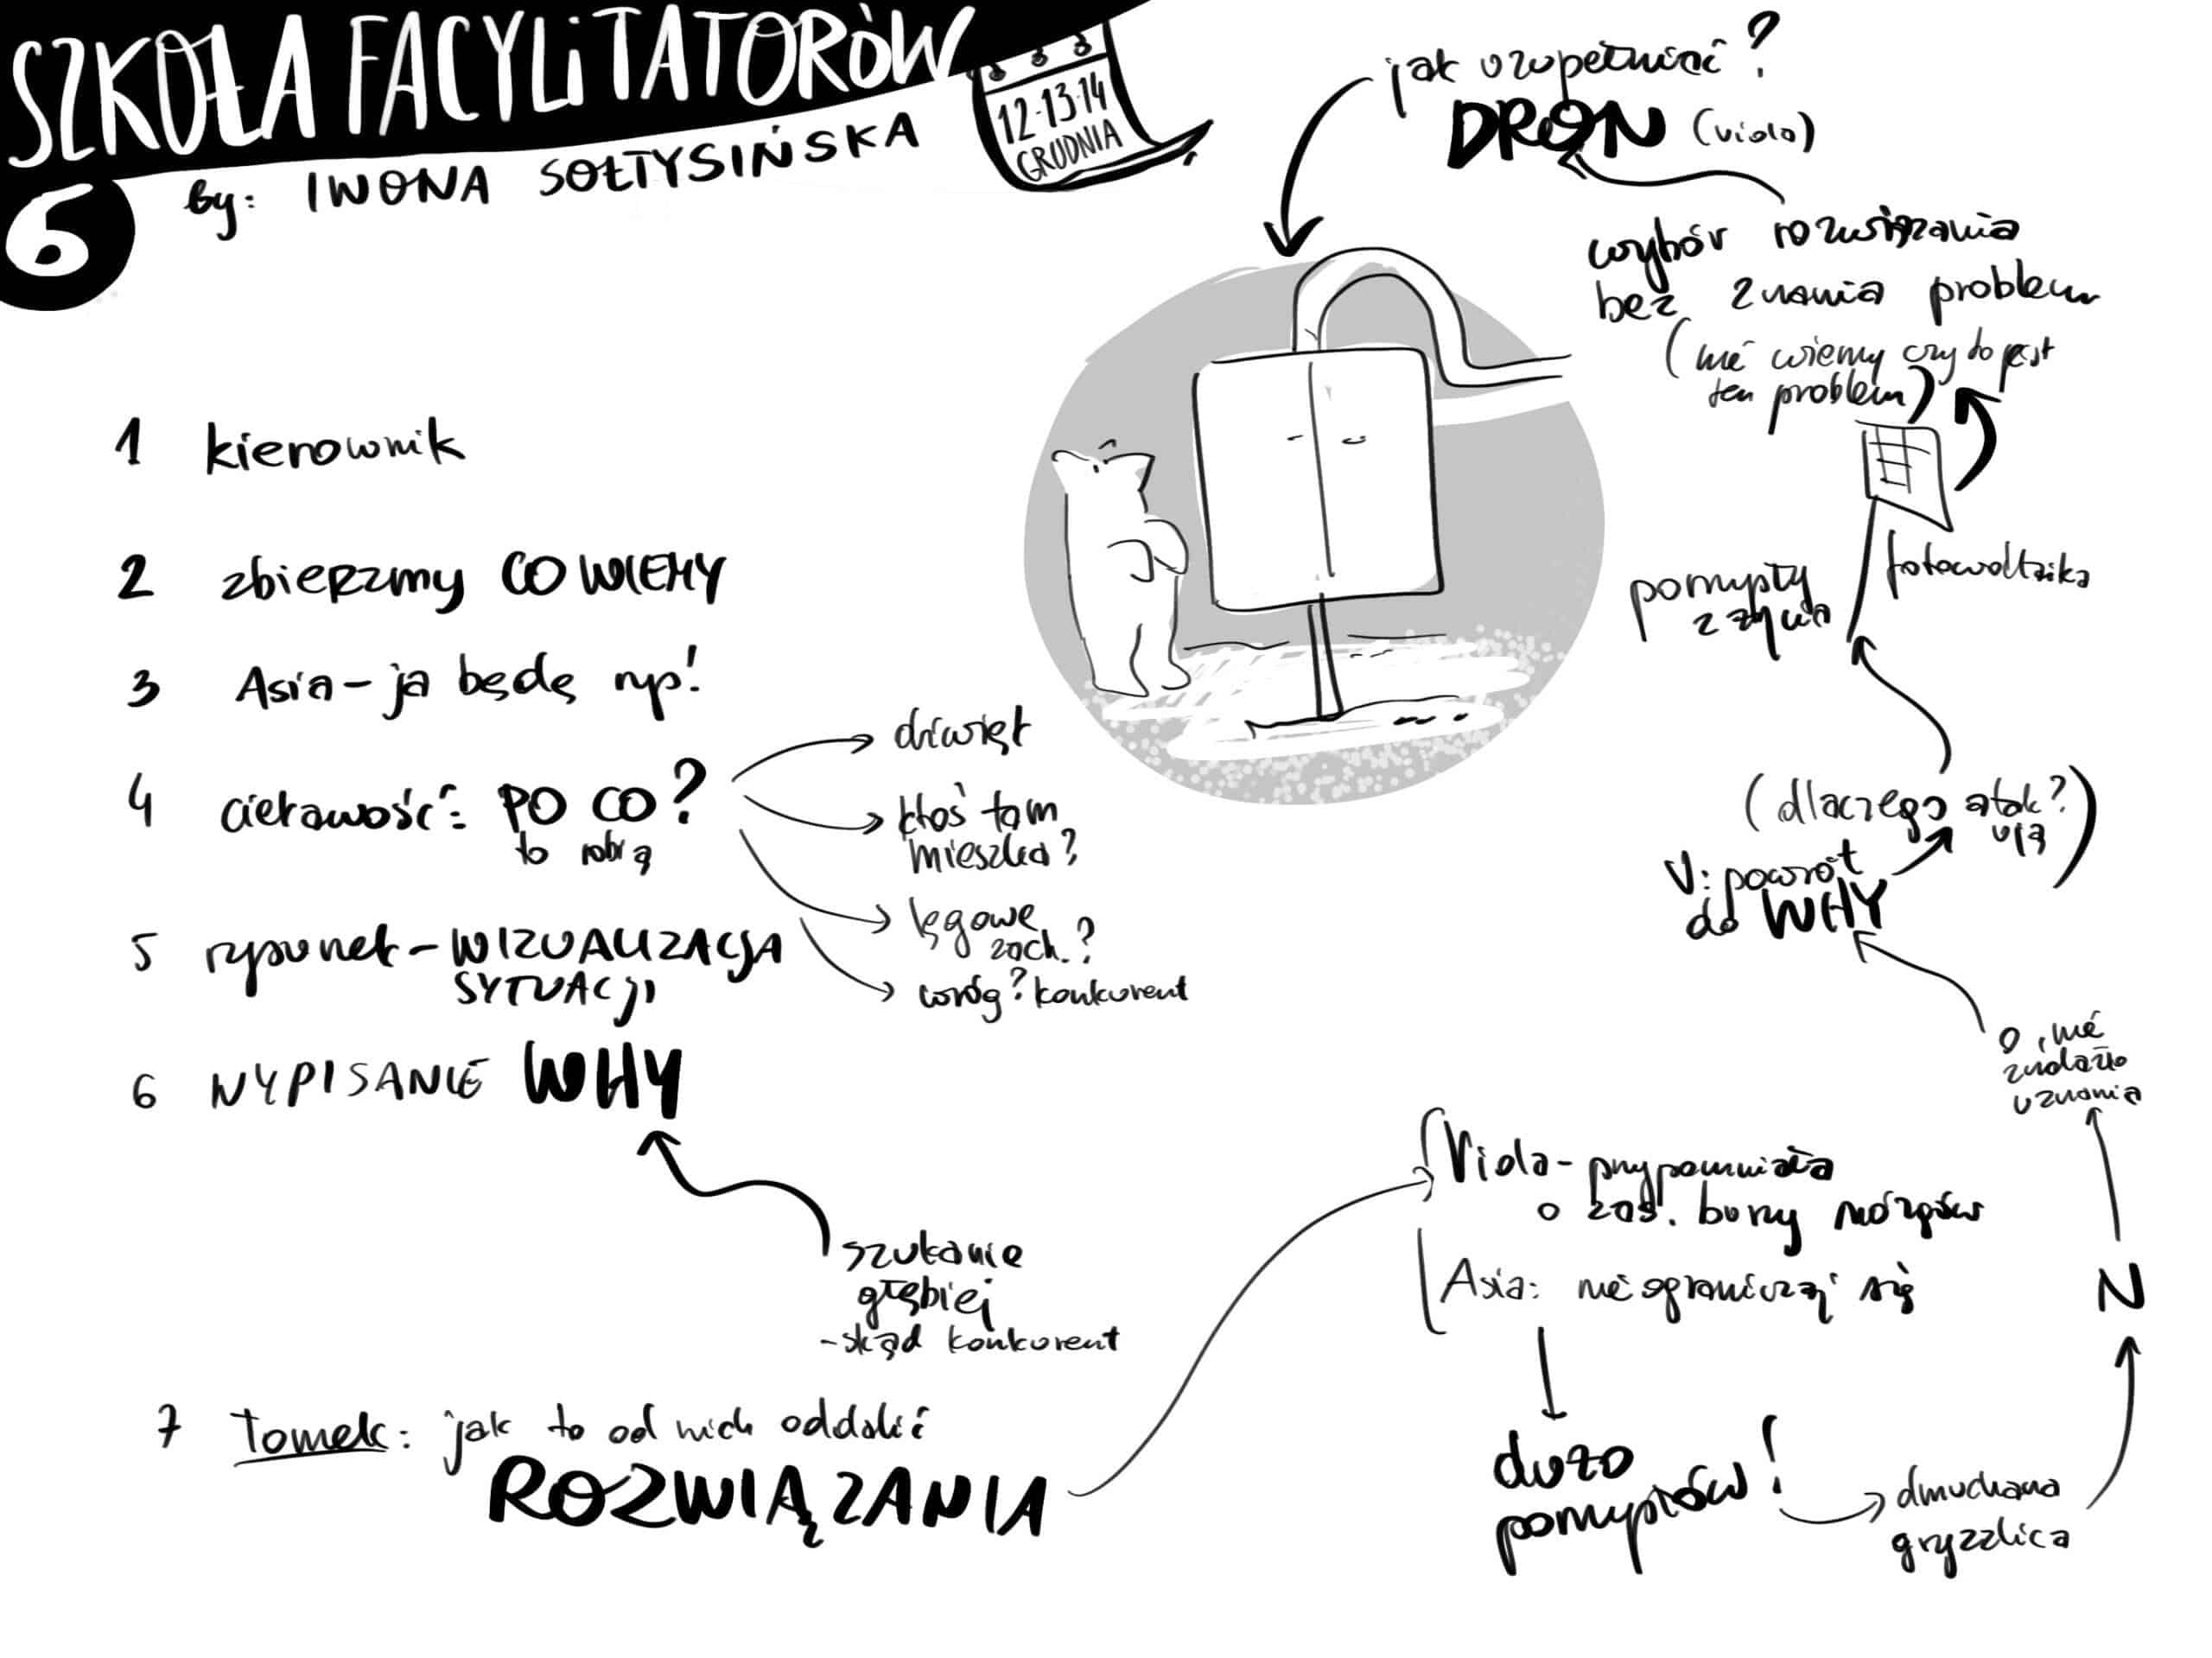 SZKOŁA FACYLITATORÓW
6
by: IWONA SOŁTYSIŃSKA
12-13-14
GRUDNIA
1 kierownik
2 zbierzmy CO WIEMY
3 Asia - ja będę np!
4 ciekawość: PO CO?
to robią
dźwięk
ktoś tam
mieszka?
lęgowe
zach.?
wróg? konkurent
5 rysunek - WIZUALIZACJA
SYTUACJI
6 WYPISANIE WHY
szukanie
głębiej
- skąd konkurent
7 Tomek: jak to od nich oddalić
ROZWIĄZANIA
Viola - przypomniała
o zas. burzy mózgów
Asia: nie ograniczaj się
dużo
pomysłów!
dmuchana
gryzzlica
N
o, nie
znalazło
uznania
V: powrót
do WHY
(dlaczego atak?)
pomysły
z życia
fotowoltaika
wybór rozwiązania
bez znania problemu
(nie wiemy czy to jest
ten problem)
jak uzupełniać?
DRON (viola)